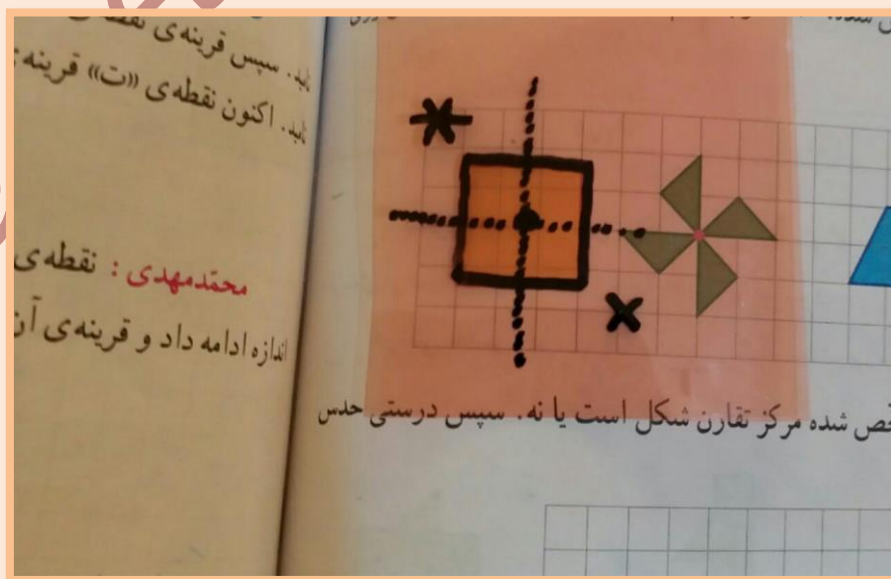 سپس قرینه‌ی نقطه‌ی
اکنون نقطه‌ی «ت» قرینه‌ی
محمّدمهدی : نقطه‌ی
اندازه ادامه داد و قرینه‌ی آن
شده مرکز تقارن شکل است یا نه. سپس درستی حدس